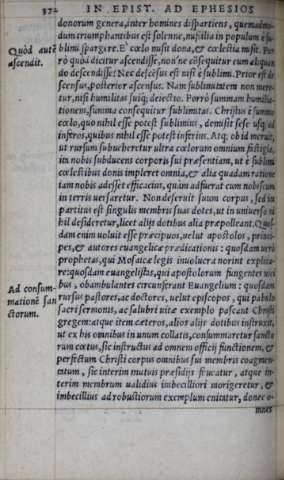 372 IN EPIST. AD EPHESIOS
donorum genera, inter homines dispartiens, quemadmo-
dum triumphantibus est solenne, missilia in populum è su-
Quòd autē blimi spargere. E cœlo misit dona, & cœlestia misit. Por-
ascendit. rò quòd dicitur ascendisse, non'ne cōsequitur eum aliquan
do descendisse? Nec descēsus est nisi è sublimi. Prior est de
scensus, posterior ascensus. Nam sublimitatem non mere-
tur, nisi humilitas suiq́; deiectio. Porrò summam humilia-
tionem, summa consequitur sublimitas. Christus è summo
cœlo, quo nihil esse potest sublimius, demisit sese usq; ad
inferos, quibus nihil esse potest inferius. Atq; ob id meruit,
ut rursum subueheretur ultra cœlorum omnium fastigia,
im nobis subducens corporis sui præsentiam, ut è sublimi
cœlestibus donis impleret omnia, & alia quadam ratione
iam nobis adesset efficacius, quàm adfuerat cum nobiscum
in terris uersaretur. Non deseruit suum corpus, sed im
partitus est singulis membris suas dotes, ut in uniuerso ni
hil desideretur, licet alijs dotibus alia præpolleant. Quos-
dam enim uoluit esse præcipuos, uelut apostolos, princi-
pes, & autores euangelicæ prædicationis: quosdam uerò
prophetas, qui Mosaicæ legis inuolucra norint explica-
re: quosdam euangelistas, qui apostolorum fungentes uici
Ad consum- bus, obambulantes circunferant Euangelium: quosdam
mationē san rursus pastores, ac doctores, uelut episcopos, qui pabulo
ctorum. sacri sermonis, ac salubri uitæ exemplo pascant Christi
gregem: atque item cæteros, alios alijs dotibus instruxit,
ut ex his omnibus in unum collatis, consummaretur sancto
rum cœtus, sic instructus ad omnem officij functionem, &
perfectum Christi corpus omnibus sui membris coagmen-
tatum, sic interim mutuis præsidijs foueatur, atque in-
terim membrum ualidius imbecilliori morigeretur, &
imbecillius ad robustiorum exemplum enitatur, donec o-
mnes